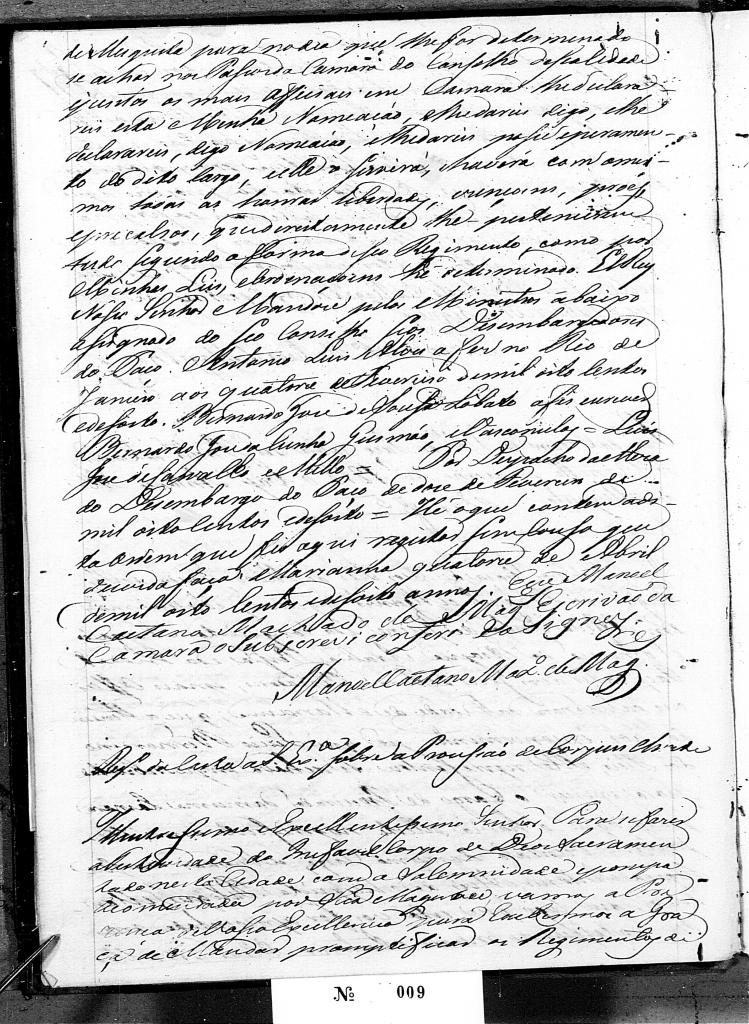 de Mesquita para no dia que lhe for determinado
se achar nos Passos da Camara do Conselho dessa Cidade
e juntos os mais officiaes em Camara lhe declara
reis esta Minha Nomeação, e lhe dareis digo, e lhe
declarareis, digo Nomeação, e lhe dareis posse e juramen-
to do dito Cargo, e elle o servirá, e havera com o mes-
mos todas as honras liberdades, e, proes
e precalsos, que direitamente lhe pertencerem
tudo segundo a forma de seo Regimento, como por
Minhas Leis, e Ordenaçoens he determinado. El Rey
Nosso Senhor Mandou pelos Ministros abaixo
asignados do seo Conselho e seos Desembargadores
do Paço. Antonio Luis Alves a fes no Rio de
Janeiro aos quatorze de Fevereiro de mil oito centos
e desoito. Bernardo Jose de Souza Lobato a fes escrever
Bernardo Jose da Cunha Gusmão, e Vasconcelos = Luis
Jose de Carvalho e Mello = Por Despacho da Meza
do Desembargo do Paço de doze de Fevereiro de
mil oito centos e desoito = Hé o que contem a di-
ta ordem que fis aqui registar sem cousa que
duvida faça Marianna quatorze de Abril
de mil oito centos e desoito annos Eu Manoel
Caetano Machado de Mag. Escrivão da
Camara o subscrevi conferi e asigney
Manoel Caetano Maxo. de Mag.
Regº. da Carta a S. Exª. sobre a Procissaó de Corpus Christe
Illustrissimo e Excellentissimo Senhor. Para se fazer
a festividade do Corpo de Deos Sacramen
tado nesta Cidade com a Solemnidade
recomendada por Sua Magestade vamos a Pre
zença de Vossa Excellencia para a Gra
ça de Mandar promptificar os Regimentos de